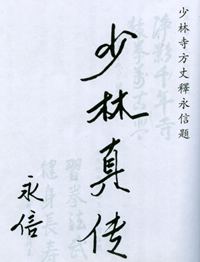 少林寺方丈釋永信題
少林真传
永信